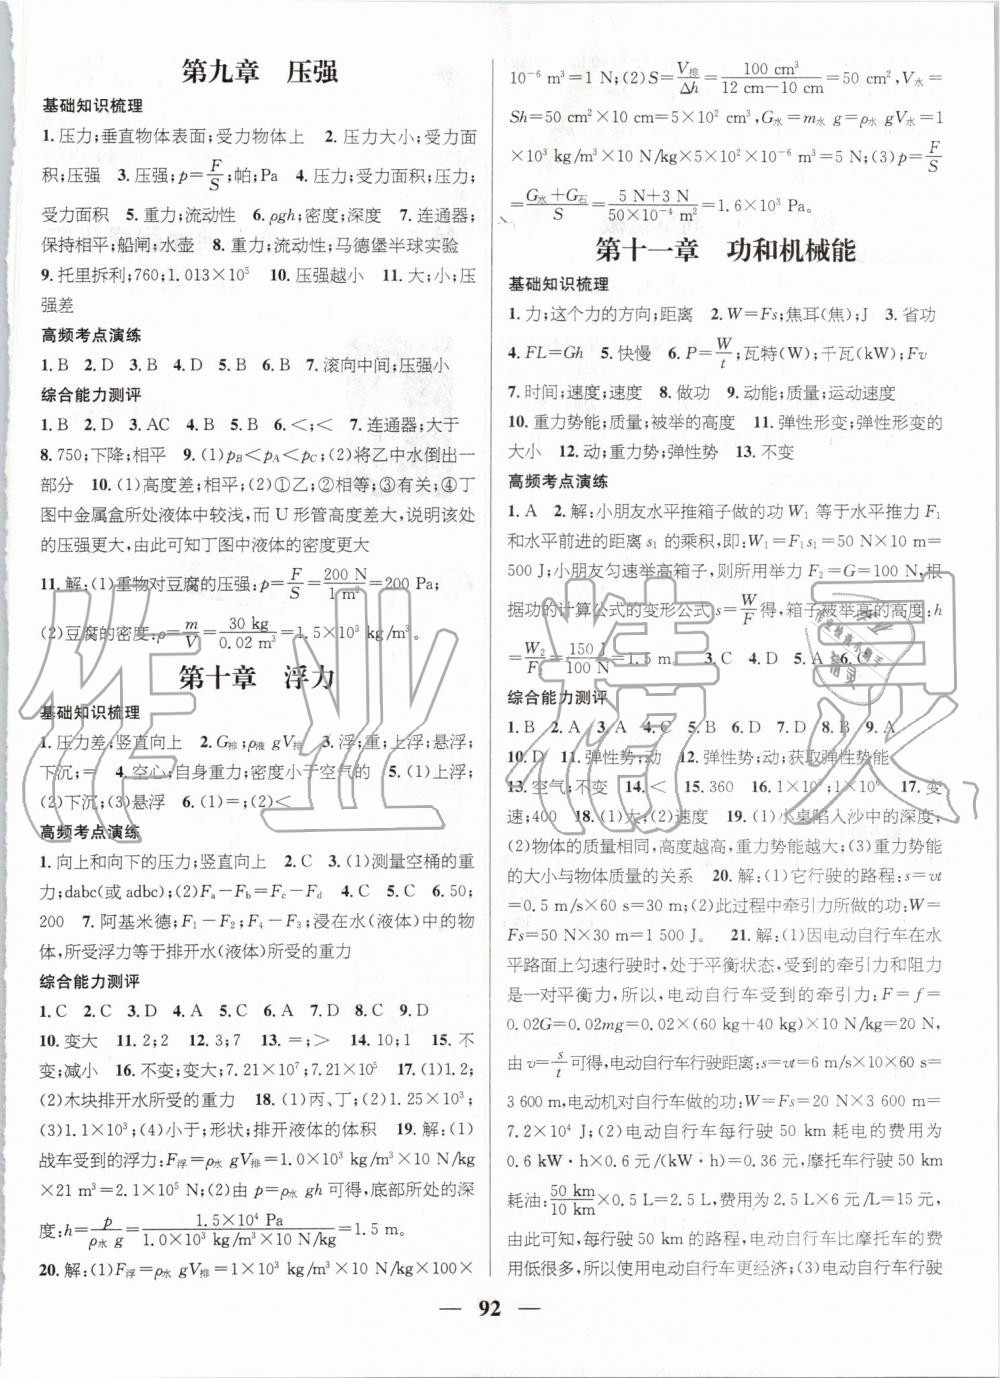 第九章　压强
基础知识梳理
1. 压力;垂直物体表面;受力物体上　2. 压力大小;受力面
积;压强　3. 压强;p=F/S;帕;Pa　4. 压力;受力面积;压力;
受力面积　5. 重力;流动性　6. ρgh;密度;深度　7. 连通器;
保持相平;船闸;水壶　8. 重力;流动性;马德堡半球实验
9. 托里拆利;760;1.013×10⁵　10. 压强越小　11. 大;小;压
强差
高频考点演练
1. B　2. D　3. B　4. D　5. B　6. B　7. 滚向中间;压强小
综合能力测评
1. B　2. D　3. AC　4. B　5. B　6. <;<　7. 连通器;大于
8. 750;下降;相平　9. (1)p_B<p_A<p_C;(2)将乙中水倒出一
部分　10. (1)高度差;相平;(2)①乙;②相等;③有关;④丁
图中金属盒所处液体中较浅,而 U 形管高度差大,说明该处
的压强更大,由此可知丁图中液体的密度更大
11. 解:(1)重物对豆腐的压强:p=F/S=200 N/1 m²=200 Pa;
(2)豆腐的密度:ρ=m/V=30 kg/0.02 m³=1.5×10³ kg/m³。
第十章　浮力
基础知识梳理
1. 压力差;竖直向上　2. G排;ρ液 gV排　3. 浮;重;上浮;悬浮;
下沉;=　4. 空心;自身重力;密度小于空气的　5. (1)上浮;
(2)下沉;(3)悬浮　6. (1)<;(2)<
高频考点演练
1. 向上和向下的压力;竖直向上　2. C　3. (1)测量空桶的重
力;dabc(或 adbc);(2)Fₐ-F_b=F_c-F_d　4. C　5. C　6. 50;
200　7. 阿基米德;F₁-F₂;F₄-F₃;浸在水(液体)中的物
体,所受浮力等于排开水(液体)所受的重力
综合能力测评
1. C　2. C　3. D　4. A　5. C　6. D　7. A　8. C　9. D
10. 变大　11. 2;2　12. 3;7　13. =;>　14. 10;1　15. 不
变;减小　16. 不变;变大;7.21×10⁷;7.21×10⁵　17. (1)1.2;
(2)木块排开水所受的重力　18. (1)丙、丁;(2)1.25×10³;
(3)1.1×10³;(4)小于;形状;排开液体的体积　19. 解:(1)
战车受到的浮力:F浮=ρ水 gV排=1.0×10³ kg/m³×10 N/kg
×21 m³=2.1×10⁵ N;(2)由 p=ρ水 gh 可得,底部所处的深
度:h=p/ρ水 g=1.5×10⁴ Pa/1.0×10³ kg/m³×10 N/kg=1.5 m。
20. 解:(1)F浮=ρ水 gV排=1×10³ kg/m³×10 N/kg×100×
10⁻⁶ m³=1 N;(2)S=V排/Δh=100 cm³/12 cm-10 cm=50 cm²,V水=
Sh=50 cm²×10 cm=5×10² cm³,G水=m水 g=ρ水 gV水=1
×10³ kg/m³×10 N/kg×5×10² cm³=5 N;(3)p=F/S
=G水+G石/S=5 N+3 N/50×10⁻⁴ m²=1.6×10³ Pa。
第十一章　功和机械能
基础知识梳理
1. 力;这个力的方向;距离　2. W=Fs;焦耳(焦);J　3. 省功
4. FL=Gh　5. 快慢　6. P=W/t;瓦特(W);千瓦(kW);Fv
7. 时间;速度;速度　8. 做功　9. 动能;质量;运动速度
10. 重力势能;质量;被举的高度　11. 弹性形变;弹性形变的
大小　12. 动;重力势;弹性势　13. 不变
高频考点演练
1. A　2. 解:小朋友水平推箱子做的功 W₁ 等于水平推力 F₁
和水平前进的距离 s₁ 的乘积,即:W₁=F₁s₁=50 N×10 m=
500 J;小朋友匀速举高箱子,则所用举力 F₂=G=100 N,根
据功的计算公式的变形公式 s=W/F得,箱子被举高的高度:h
=W₂/F₂=150 J/100 N=1.5 m。　3. C　4. D　5. A　6.
综合能力测评
1. B　2. A　3. A　4. C　5. B　6. D　7. D　8. B　9. A
10. D　11. 弹性势;动　12. 弹性势;动;获取弹性势能
13. 空气;不变　14. <　15. 360　16. 1×10⁵;1×10⁶　17. 变
速;400　18. (1)大;(2)大　19. (1)小桌陷入沙中的深度;
(2)物体的质量相同,高度越高,重力势能越大;(3)重力势能
的大小与物体质量的关系　20. 解:(1)它行驶的路程:s=vt
=0.5 m/s×60 s=30 m;(2)此过程中牵引力所做的功:W=
Fs=50 N×30 m=1 500 J。　21. 解:(1)因电动自行车在水
平路面上匀速行驶时,处于平衡状态,受到的牵引力和阻力
是一对平衡力,所以,电动自行车受到的牵引力:F=f=
0.02G=0.02mg=0.02×(60 kg+40 kg)×10 N/kg=20 N,
由 v=s/t可得,电动自行车行驶距离:s=vt=6 m/s×10×60 s=
3 600 m,电动机对自行车做的功:W=Fs=20 N×3 600 m=
7.2×10⁴ J;(2)电动自行车每行驶 50 km 耗电的费用为
0.6 kW·h×0.6 元/(kW·h)=0.36 元,摩托车行驶 50 km
耗油:50 km/10 km×0.5 L=2.5 L,费用为 2.5 L×6 元/L=15 元,
由此可知,每行驶 50 km 的路程,电动自行车比摩托车的费
用低很多,所以使用电动自行车更经济;(3)电动自行车行驶
— 92 —
作业精灵